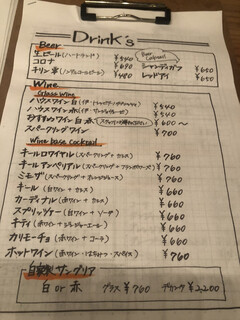 Drink's
Beer
生ビール(ハートランド) ¥590
コロナ ¥690
キリン零(ノンアルコールビール) ¥480
Beer Cocktail
シャンディガフ ¥650
レッドアイ ¥650
Wine
Glass Wine
ハウスワイン 白 ¥540
ハウスワイン 赤 ¥540
おすすめワイン 白 赤 ¥600〜
スパークリングワイン ¥700
Wine base Cocktail
キールロワイヤル(スパークリング+カシス) ¥760
キールアンペリアル(スパークリング+フランボワーズ) ¥760
ミモザ(スパークリング+オレンジジュース) ¥760
キール(白ワイン+カシス) ¥660
カーディナル(赤ワイン+カシス) ¥660
スプリッツァー(白ワイン+ソーダ) ¥660
キティ(赤ワイン+ジンジャーエール) ¥660
カリモーチョ(赤ワイン+コーラ) ¥660
ホットワイン(赤ワイン・スパイス) ¥760
自家製サングリア
白 or 赤 グラス ¥760 デカンタ ¥2,200